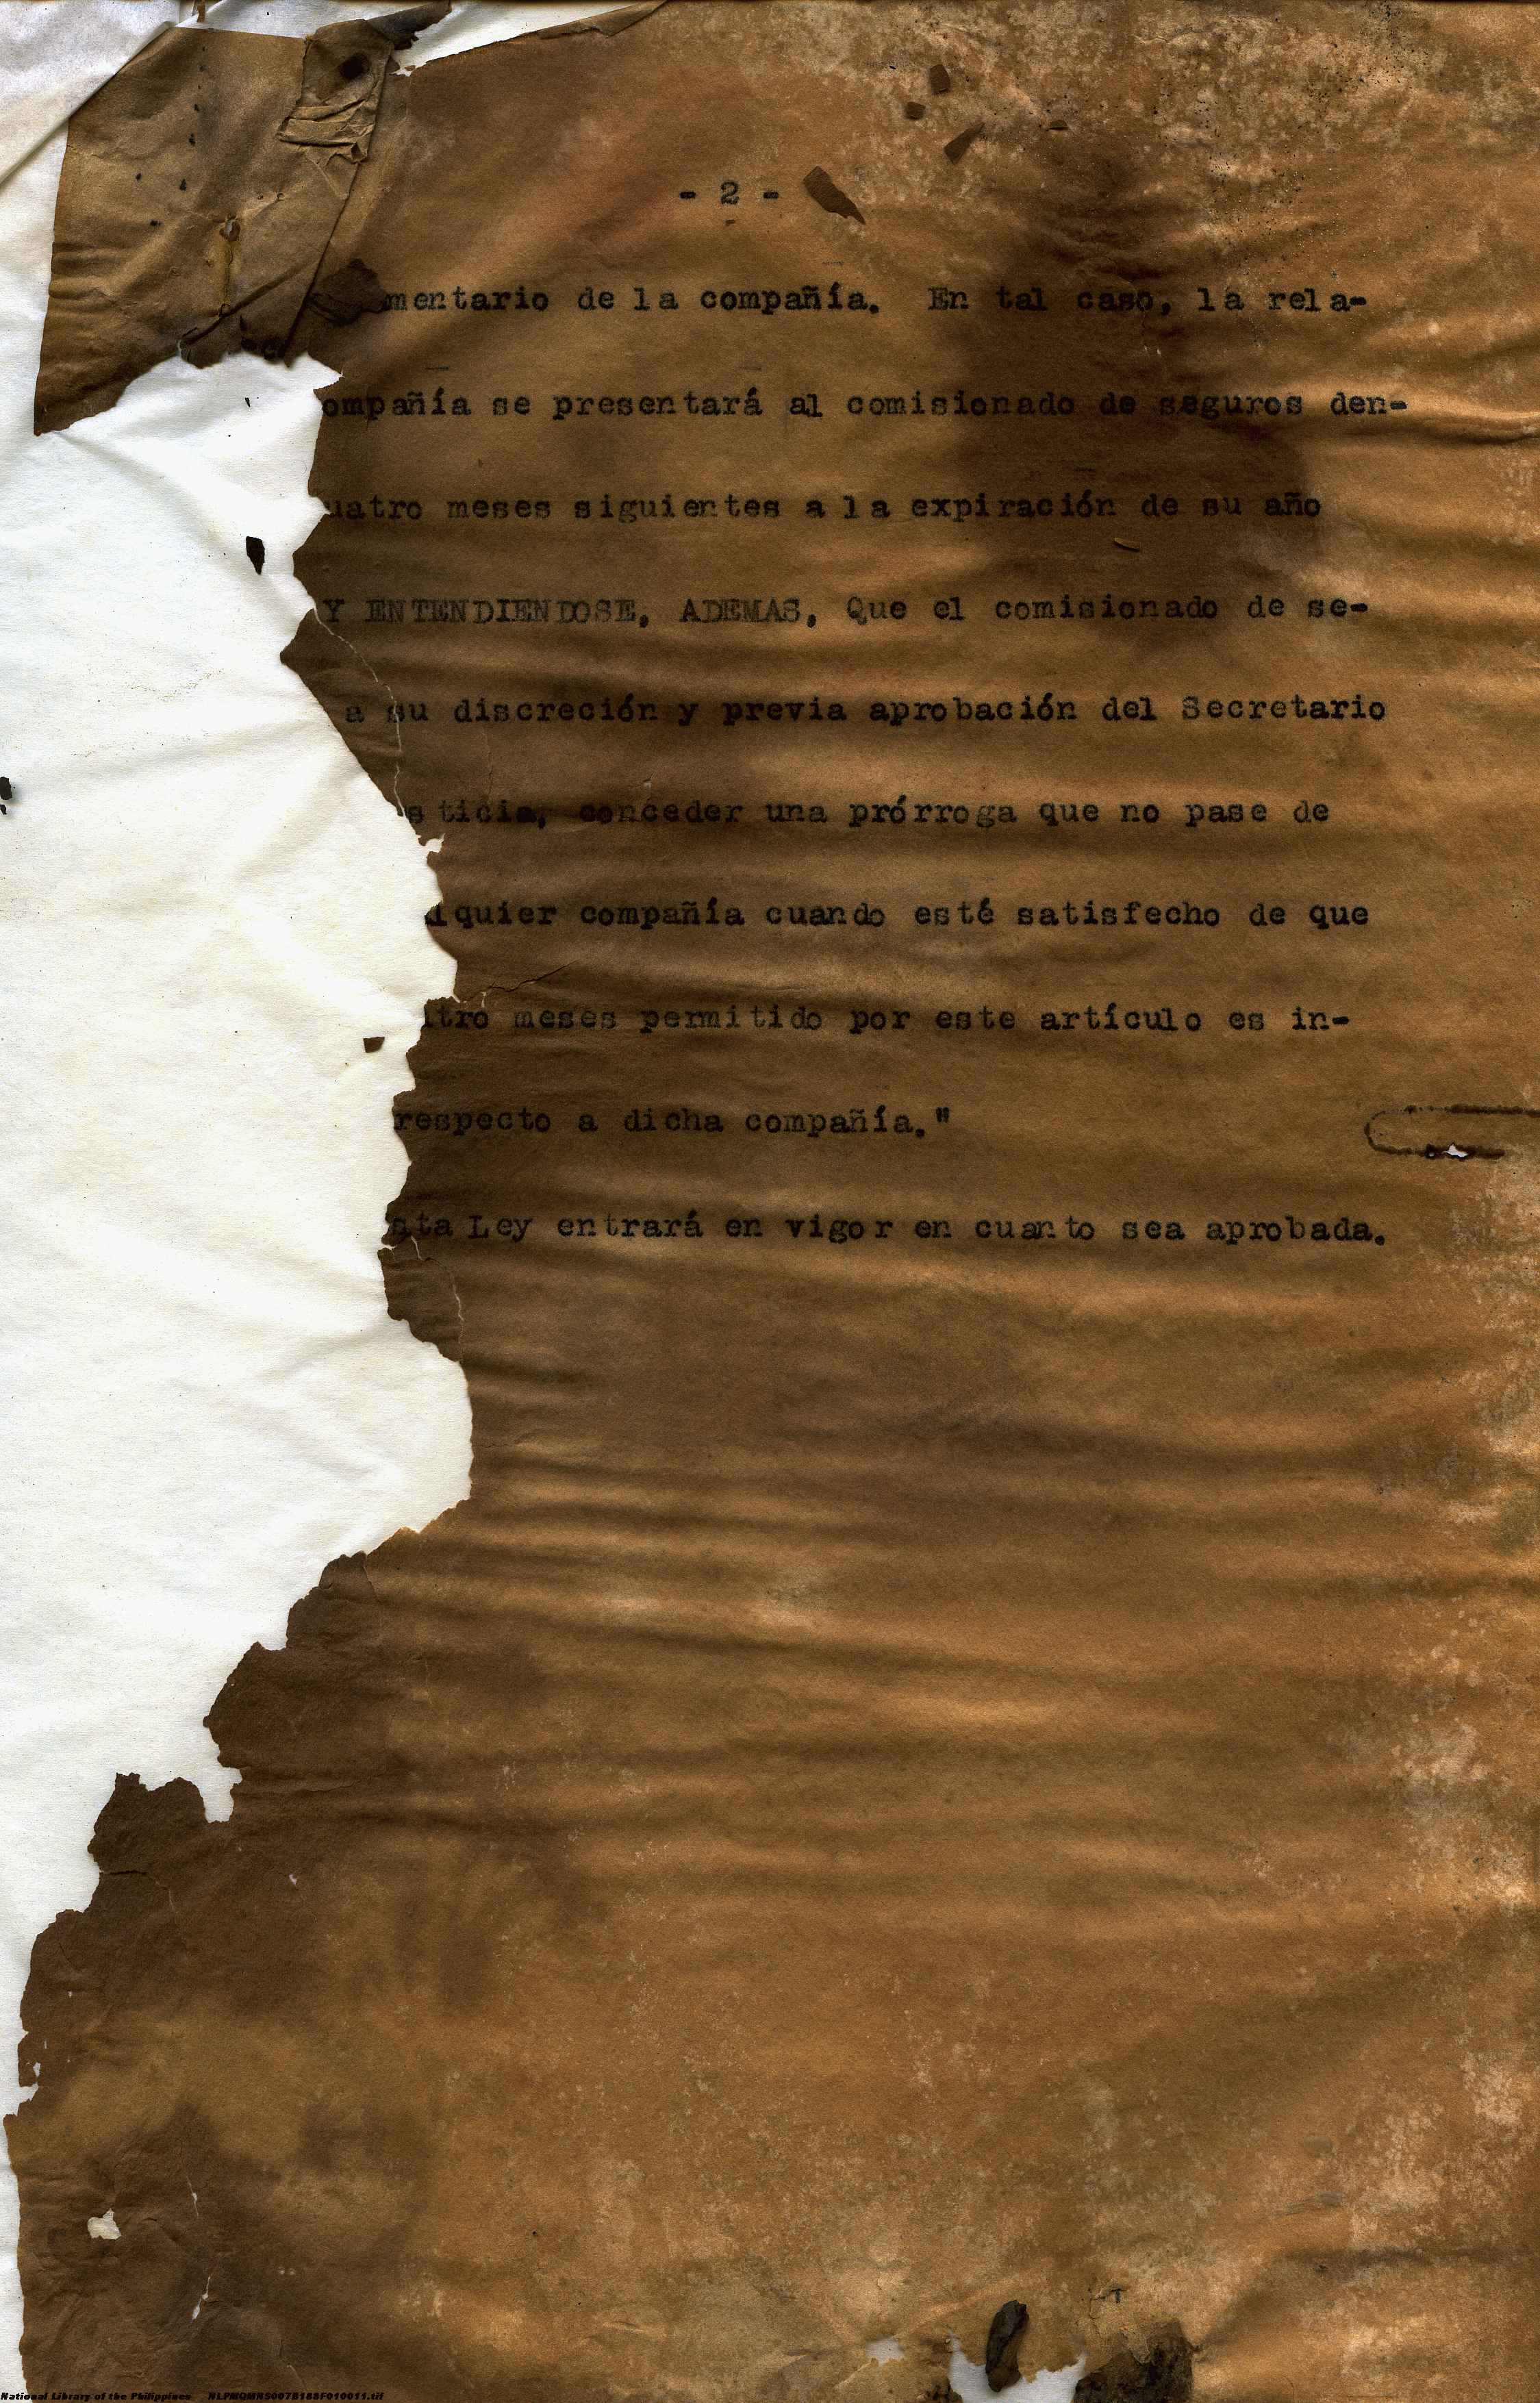 - 2 -
mentario de la compañía. En tal caso, la rela-
ompañía se presentará al comisionado de seguros den-
uatro meses siguientes a la expiración de su año
Y ENTENDIENDOSE, ADEMAS, Que el comisionado de se-
a su discreción y previa aprobación del Secretario
sticia, conceder una prórroga que no pase de
lquier compañía cuando esté satisfecho de que
tro meses permitido por este artículo es in-
respecto a dicha compañía."
sta Ley entrará en vigor en cuanto sea aprobada.
National Library of the Philippines NLPMQMNS007B188F010011.tif